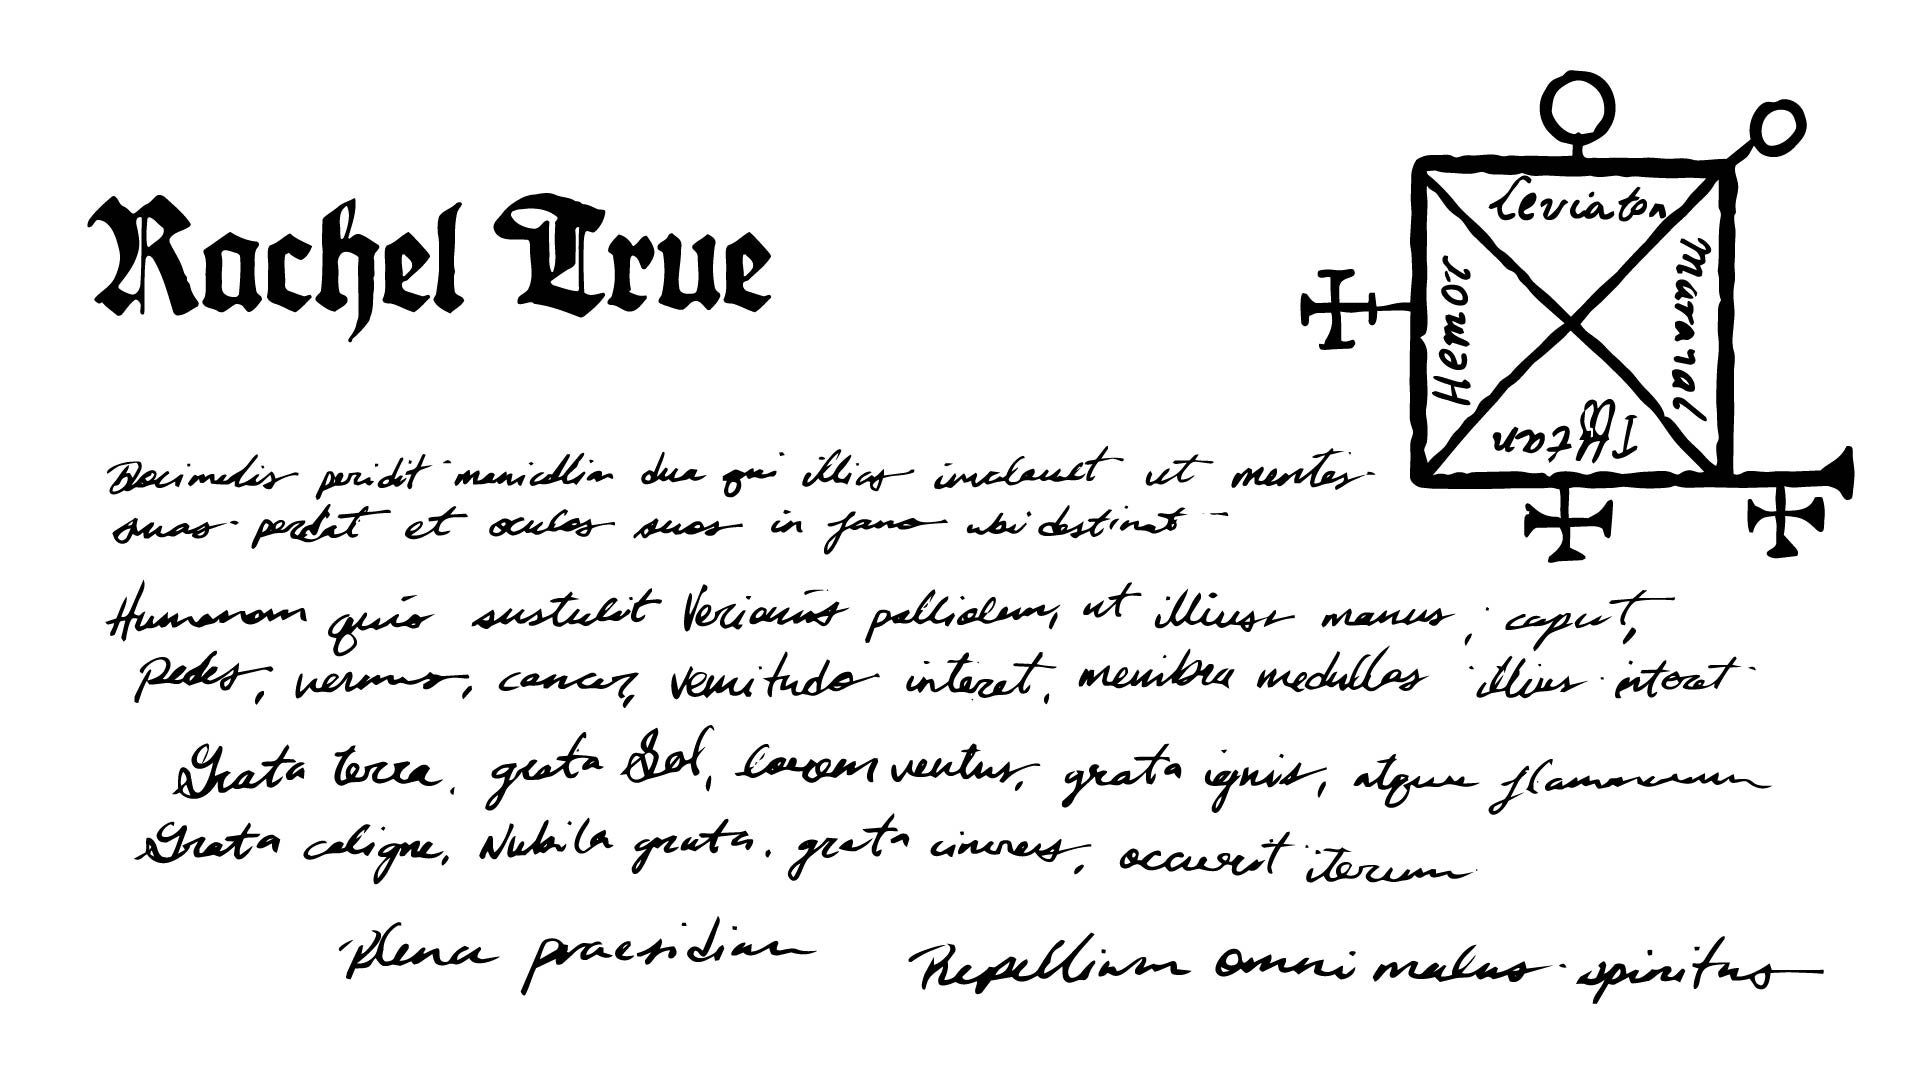 Rachel True
Leviaton
Mararal
Hemor
Ifftan
peridit manicellian dua qui illias ut mentes
suas perdat et oculos suos in fano ubi destinat
Humanam quio sustulit palliolum, ut illius manus, caput,
Pedes, vermus, cancer, vemitudo interet, membra medullas illius intorat
Grata terra, grata Sol, ventus, grata ignis, atque
Grata caligne, Nubila grata, grata cineres, iterum
Plena praesidium
Repellium omni malus spiritus